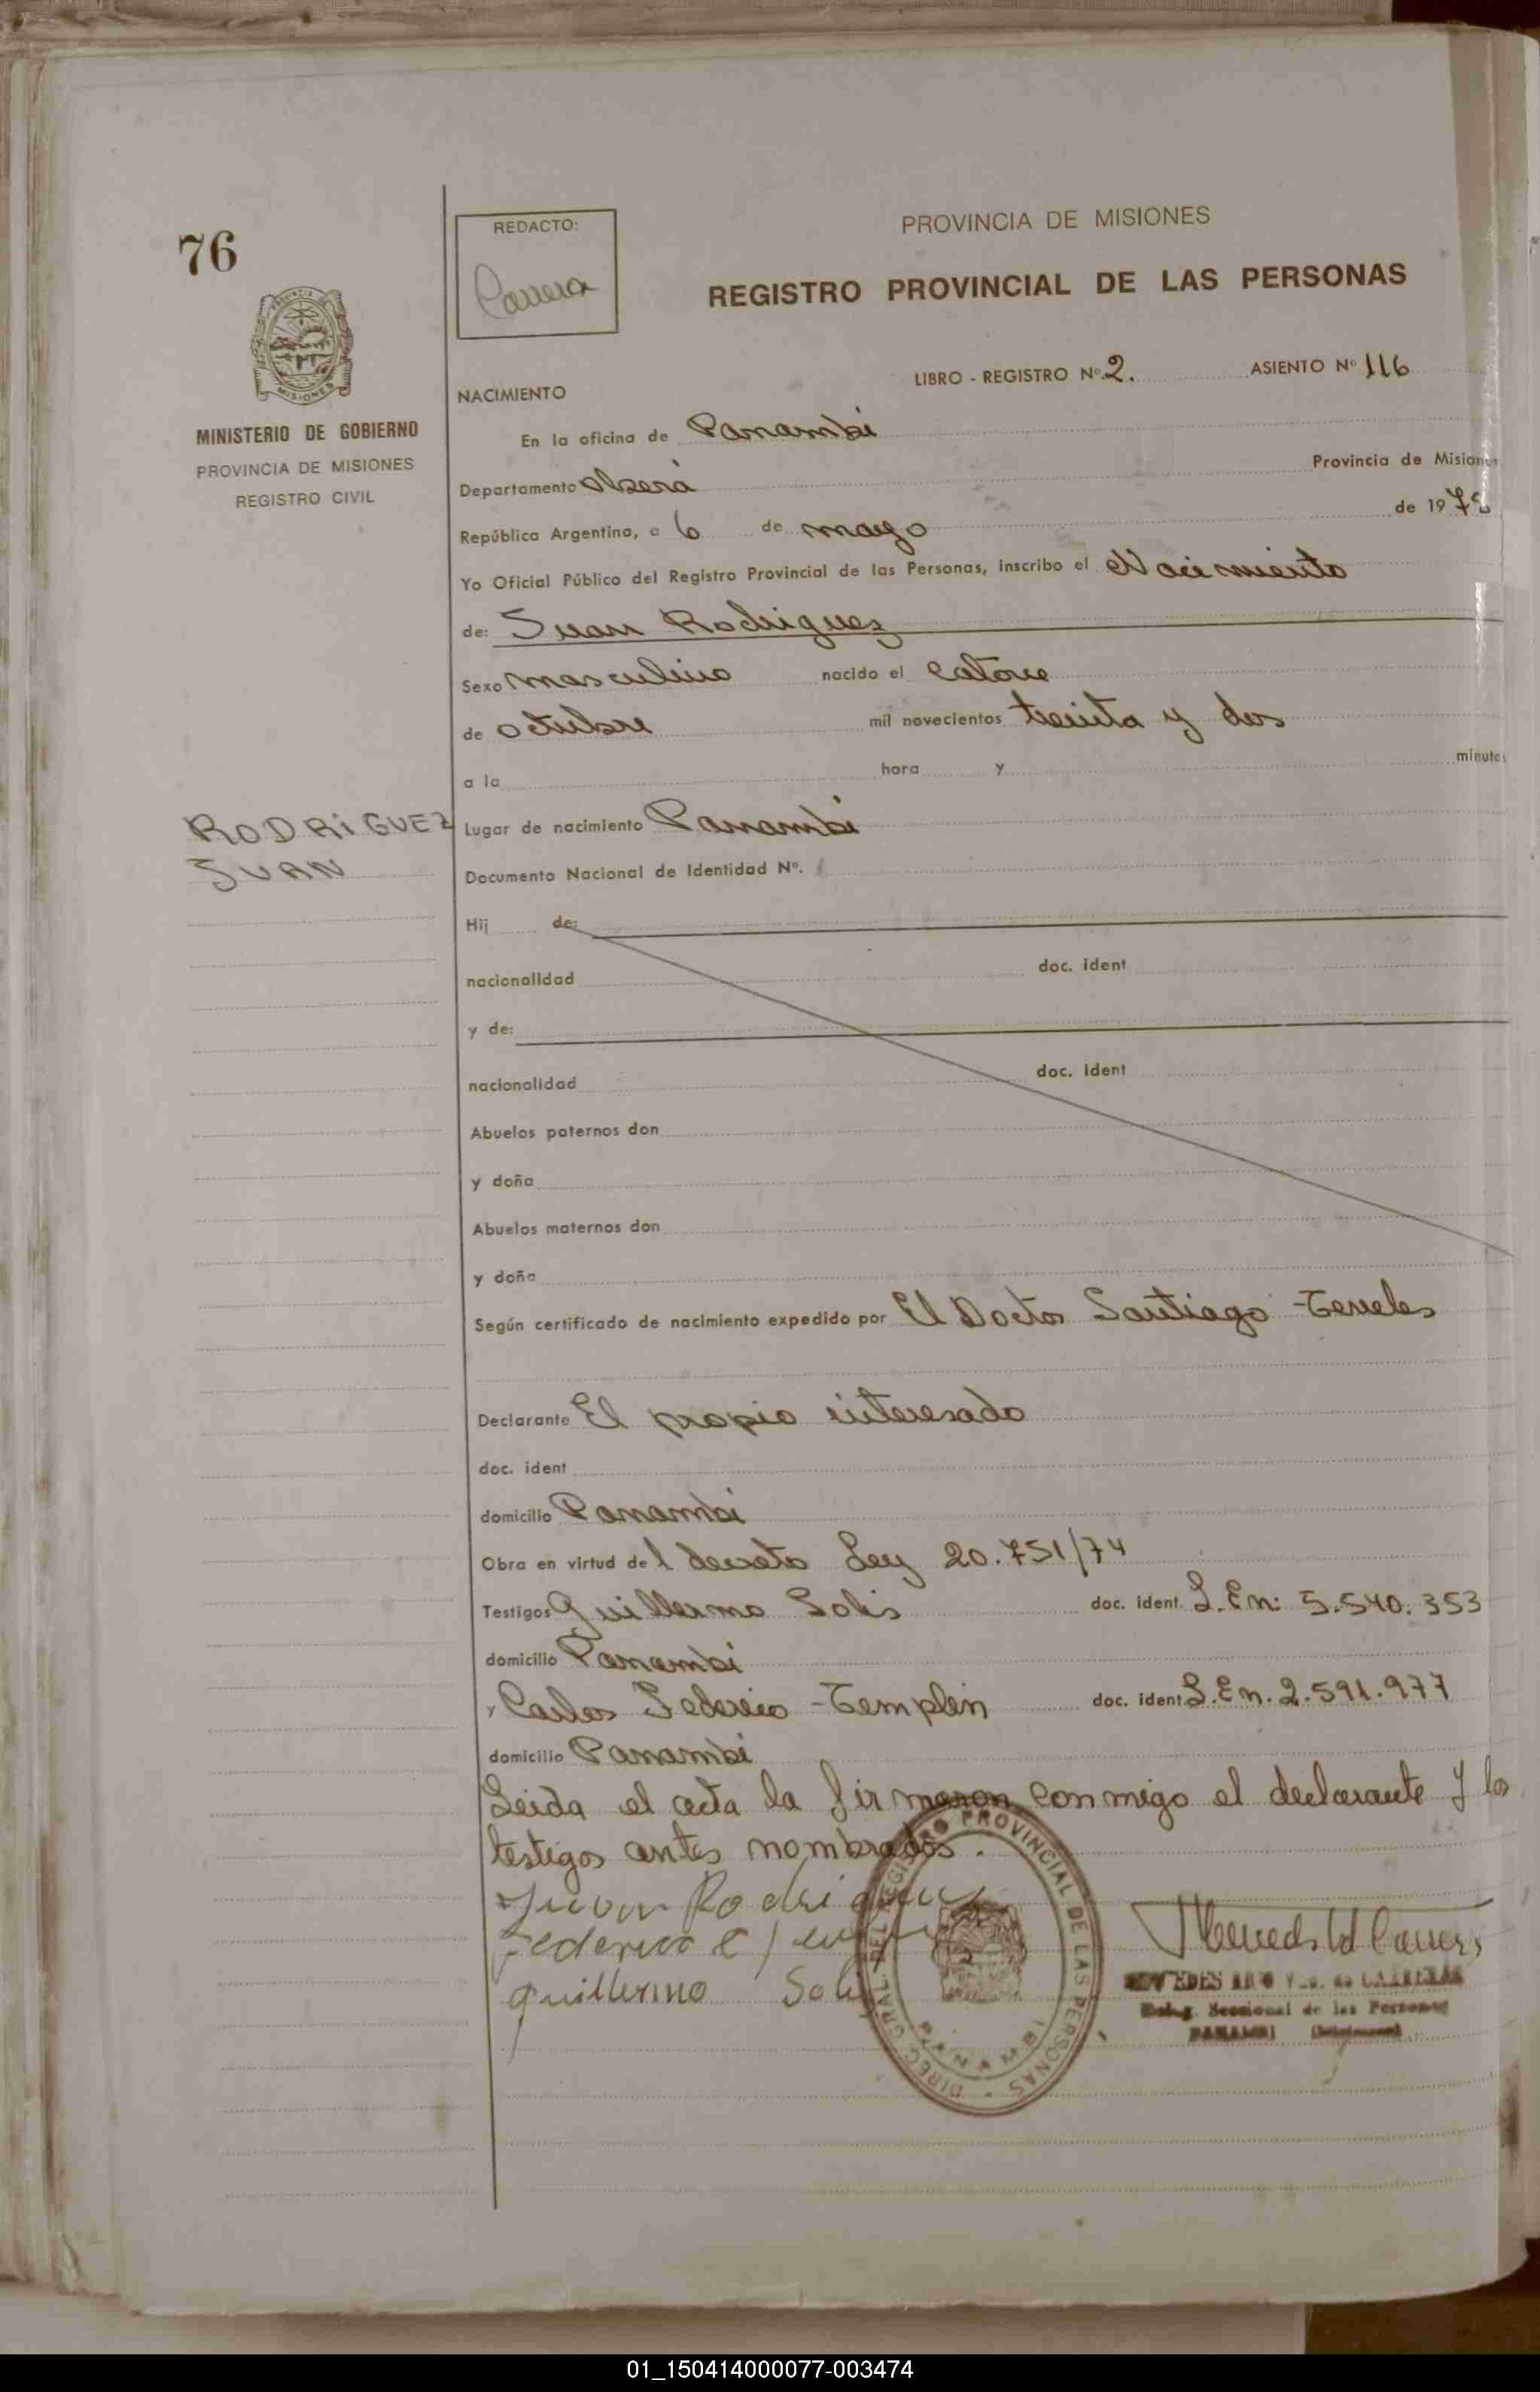 76
REDACTO:
Carrera
PROVINCIA DE MISIONES
REGISTRO PROVINCIAL DE LAS PERSONAS
MISIONES
MINISTERIO DE GOBIERNO
PROVINCIA DE MISIONES
REGISTRO CIVIL
LIBRO - REGISTRO Nº 2. ASIENTO Nº 116
NACIMIENTO
En la oficina de Panambí
Departamento Oberá Provincia de Misiones
República Argentina, a 6 de mayo de 197
Yo Oficial Público del Registro Provincial de las Personas, inscribo el Nacimiento
de: Juan Rodriguez
Sexo masculino nacido el catorce
de octubre mil novecientos treinta y dos
a la hora y minutos
RODRIGUEZ
JUAN
Lugar de nacimiento Panambí
Documento Nacional de Identidad Nº.
Hij de:
nacionalidad doc. ident
y de:
nacionalidad doc. ident
Abuelos paternos don
y doña
Abuelos maternos don
y doña
Según certificado de nacimiento expedido por El Doctor Santiago
Declarante El propio interesado
doc. ident
domicilio Panambí
Obra en virtud del decreto Ley 20.751/74
Testigos Guillermo Solis doc. ident. L.E.n: 5.540.353
domicilio Panambí
y Carlos Federico Templin doc. ident L.E.n. 2.591.977
domicilio Panambí
Leida el acta la firmaron conmigo el declarante y los
testigos antes nombrados.
Juan Rodriguez
Federico C
Guillermo Solis
DIREC. GRAL. DEL REGISTRO PROVINCIAL DE LAS PERSONAS
PANAMBI
de CARRERAS
Deleg. Seccional de las Personas
PANAMBI (Misiones)
01_150414000077-003474